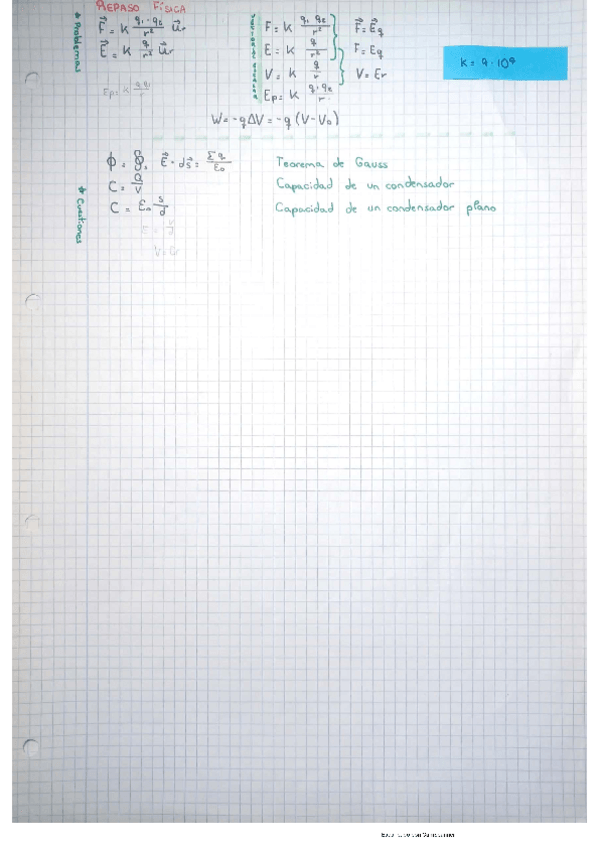 REPASO FÍSICA
→ Problemas
F⃗ = K q₁·q₂/r² u⃗r
E⃗ = K q/r² u⃗r
Ep = K q q₁/r
F = K q₁ q₂/r²
E = K q/r²
V = K q/r
Ep = K q₁·q₂/r
F⃗ = E⃗q
F = Eq
V = Er
K = 9·10⁹
W = -qΔV = -q (V-V₀)
→ Cuestiones
ϕ = ∯ E⃗·dS⃗ = Σq/ε₀ Teorema de Gauss
C = q/V Capacidad de un condensador
C = ε₀ S/d Capacidad de un condensador plano
E = V/d
V = Er